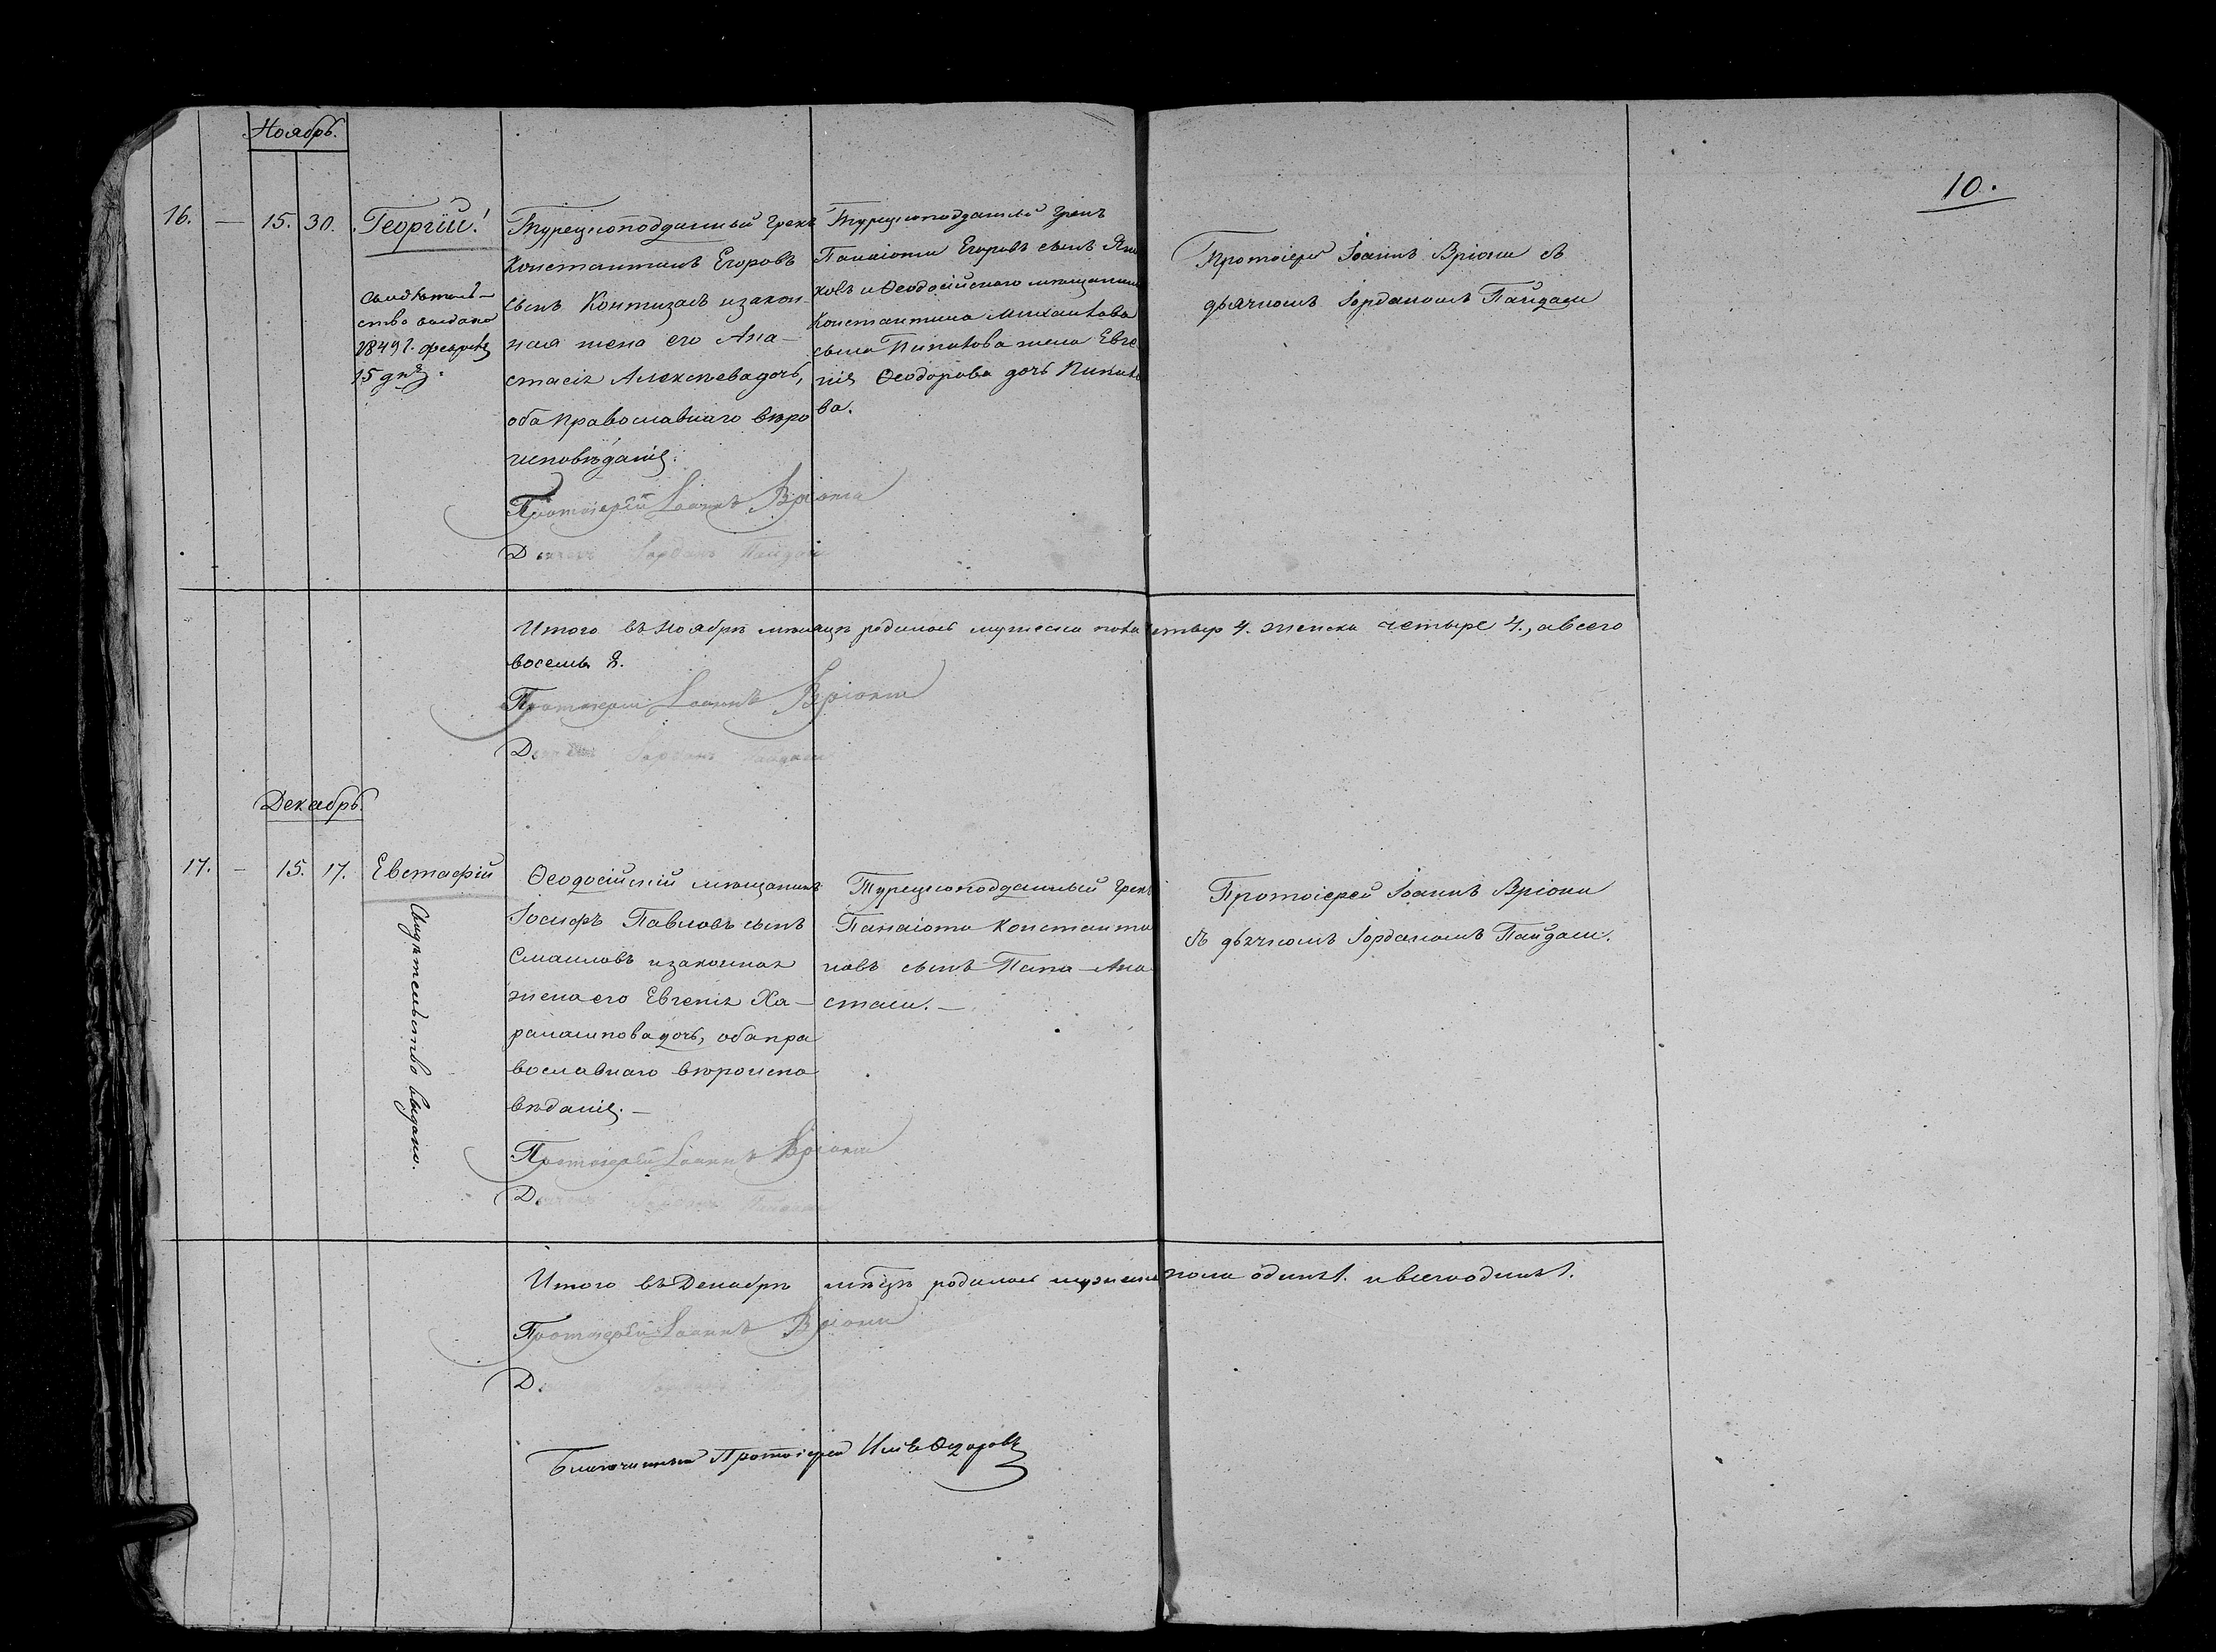 Ноябрь.
10.
16. — 15. 30. Георгій!
Свидѣтель-
ство выдано
1849 г. февраля
15 дня.
Турецкоподданный грекъ
Константинъ Егоровъ
сынъ Контизасъ и закон-
ная жена его Ана-
стасія Алексѣева дочь,
оба православнаго вѣро
исповѣданія.
Протоіерей Іоаннъ Вріони
Дьячекъ Іорданъ Пайдаси
Турецкоподданный грекъ
Панаіоти Егоровъ сынъ
и Ѳеодосійскаго мѣщанина
Константина Михаилова
сына жена Евге
нія Ѳеодорова дочь
ва.
Протоіерей Іоаннъ Вріони съ
дьячкомъ Іорданомъ Пайдаси
Итого въ Ноябрѣ мѣсяцѣ родилось мужеска пола четыр 4. женска четыре 4., а всего
восемь 8.
Протоіерей Іоаннъ Вріони
Дьячекъ Іорданъ Пайдаси
Декабрь.
17. — 15. 17. Евстафій
Свидѣтельство выдано.
Ѳеодосійскій мѣщанинъ
Іосифъ Павловъ сынъ
Смаиловъ и законная
жена его Евгенія Ха-
рлампова дочь, оба пра
вославнаго вѣроиспо
вѣданія. —
Протоіерей Іоаннъ Вріони
Д. Іорданъ Пайдаси
Турецкоподданный грекъ
Панаіоти Константи
новъ сынъ Папа-Ана
стаси. —
Протоіерей Іоаннъ Вріони
съ дьячкомъ Іорданомъ Пайдаси.
Итого въ Декабрѣ мѣсцѣ родилось мужеска пола одинъ 1. и всего одинъ 1.
Протоіерей Іоаннъ Вріони
Д.
Благочинный Протоіерей